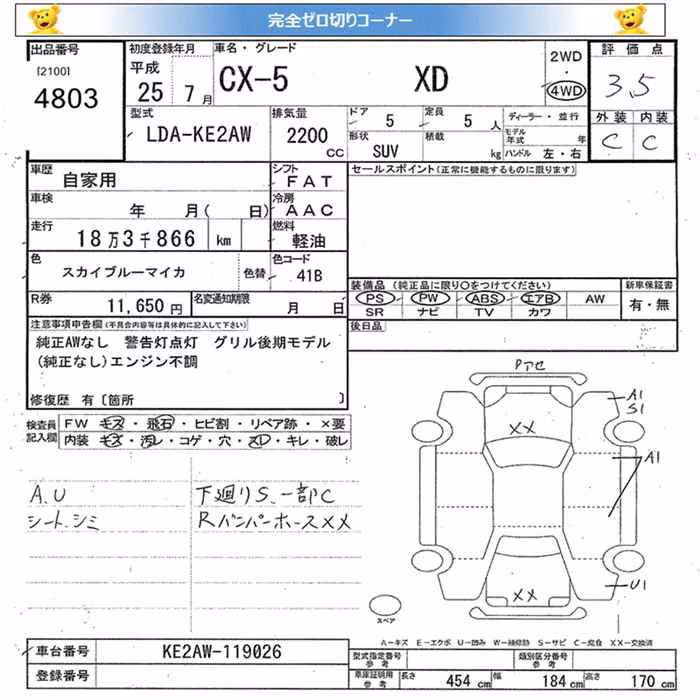 完全ゼロ切りコーナー
出品番号
[2100]
4803
初度登録年月
平成
25 7月
車名・グレード
CX-5 XD
2WD
・
4WD
評価点
3.5
外装 内装
C C
型式
LDA-KE2AW
排気量
2200
cc
ドア
5
定員
5 人
形状
SUV
積載
kg
ディーラー・並行
モデル年式 年
ハンドル 左・右
車歴
自家用
シフト
FAT
車検
年 月( 日)
冷房
AAC
走行
18万3千866 km
燃料
軽油
色
スカイブルーマイカ
色替
色コード
41B
R券
11,650円
名変通知期限
月 日
セールスポイント(正常に機能するものに限ります)
装備品 (純正品に限り○をつけてください)
PS PW ABS エアB AW
SR ナビ TV カワ
新車保証書
有・無
後日品
注意事項申告欄(不具合内容等は具体的に記入して下さい)
純正AWなし 警告灯点灯 グリル後期モデル
(純正なし)エンジン不調
修復歴 有〔箇所 〕
検査員記入欄
FW キズ・飛石・ヒビ割・リペア跡・×要
内装 キズ・汚レ・コゲ・穴・スレ・キレ・破レ
A.U
シート.シミ
下廻りS.一部C
RバンパーホースXX
Pアセ
XX
A1
S1
A1
U1
XX
スペア
A-キズ E-エクボ U-凹み W-補修跡 S-サビ C-腐食 XX-交換済
車台番号
KE2AW-119026
登録番号
型式指定番号
参考
類別区分番号
参考
車庫証明用
参考
長さ 454 cm 幅 184 cm 高さ 170 cm